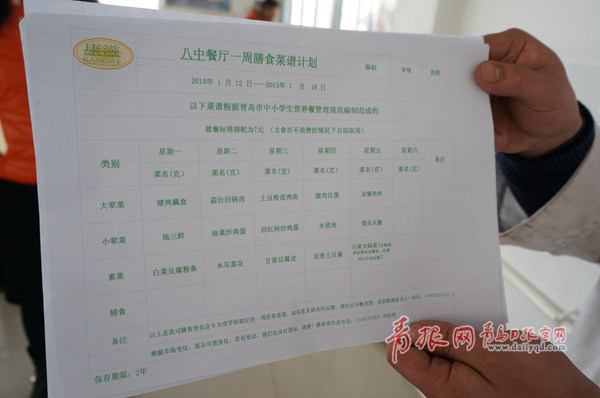 康溢
KANGYI
八中餐厅一周膳食菜谱计划
编制 审核 批准
2015年 1 月 12 日——2015年 1 月 16 日
以下菜谱根据青岛市中小学生营养餐管理规范编制而成的
就餐标准搭配为7元 (主食在不浪费的情况下自助取用)
类别 星期一 星期二 星期三 星期四 星期五 星期六 备注
菜名(克) 菜名(克) 菜名(克) 菜名(克) 菜名(克) 菜名(克)
大荤菜 猪肉藕盒 蒜台回锅肉 土豆粉皮鸡块 猪肉汉堡
小荤菜 地三鲜 油菜炒鸡蛋 西红柿炒鸡蛋 木须肉
素菜 白菜豆腐粉条 木耳菜花 甘蓝豆腐皮 茴香土豆条
辅食
备注
保存期限：2年
青报网 青岛日报官网
www.dailyqd.com